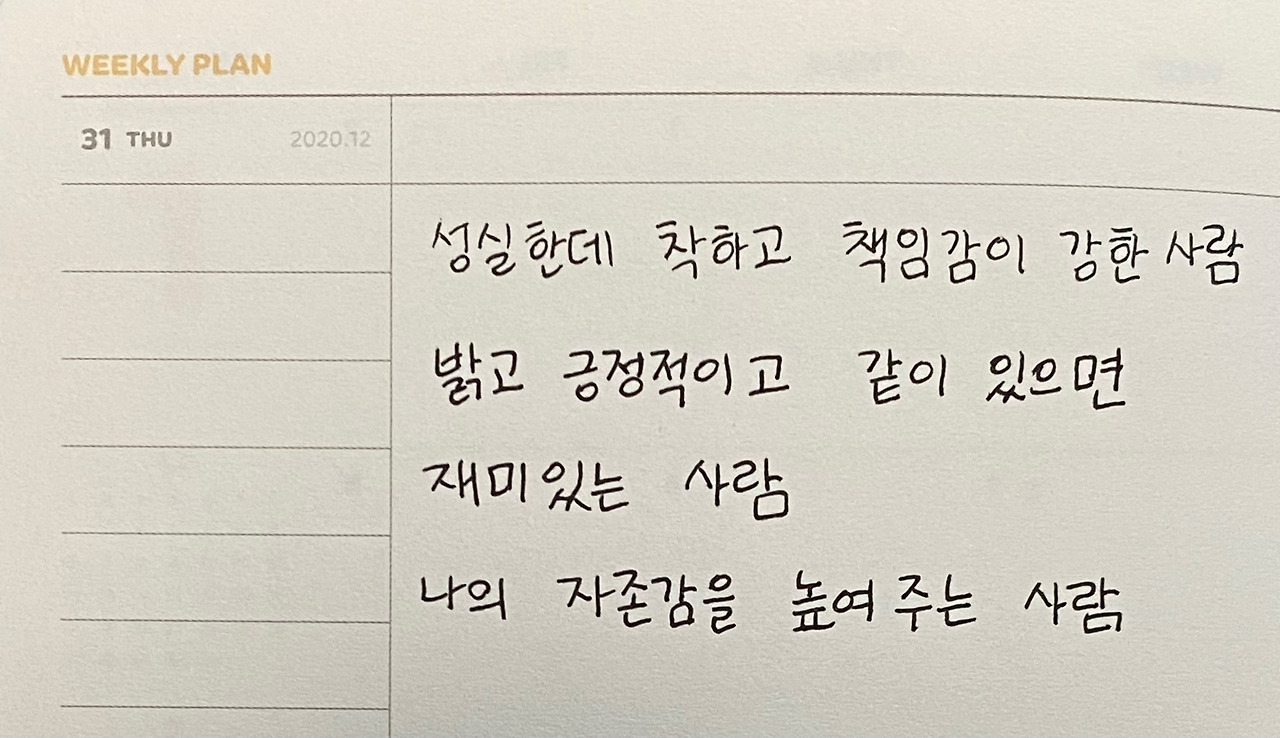 WEEKLY PLAN
31 THU 2020.12
성실한데 착하고 책임감이 강한 사람
밝고 긍정적이고 같이 있으면
재미있는 사람
나의 자존감을 높여 주는 사람